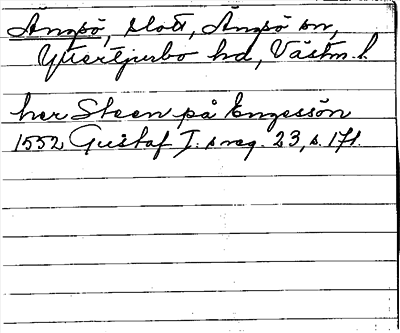 Ängsö, slott, Ängsö sn,
Yttertjurbo hd, Västm. l.
her Steen på Engessön
1552 Gustaf I:s reg. 23, s. 171.